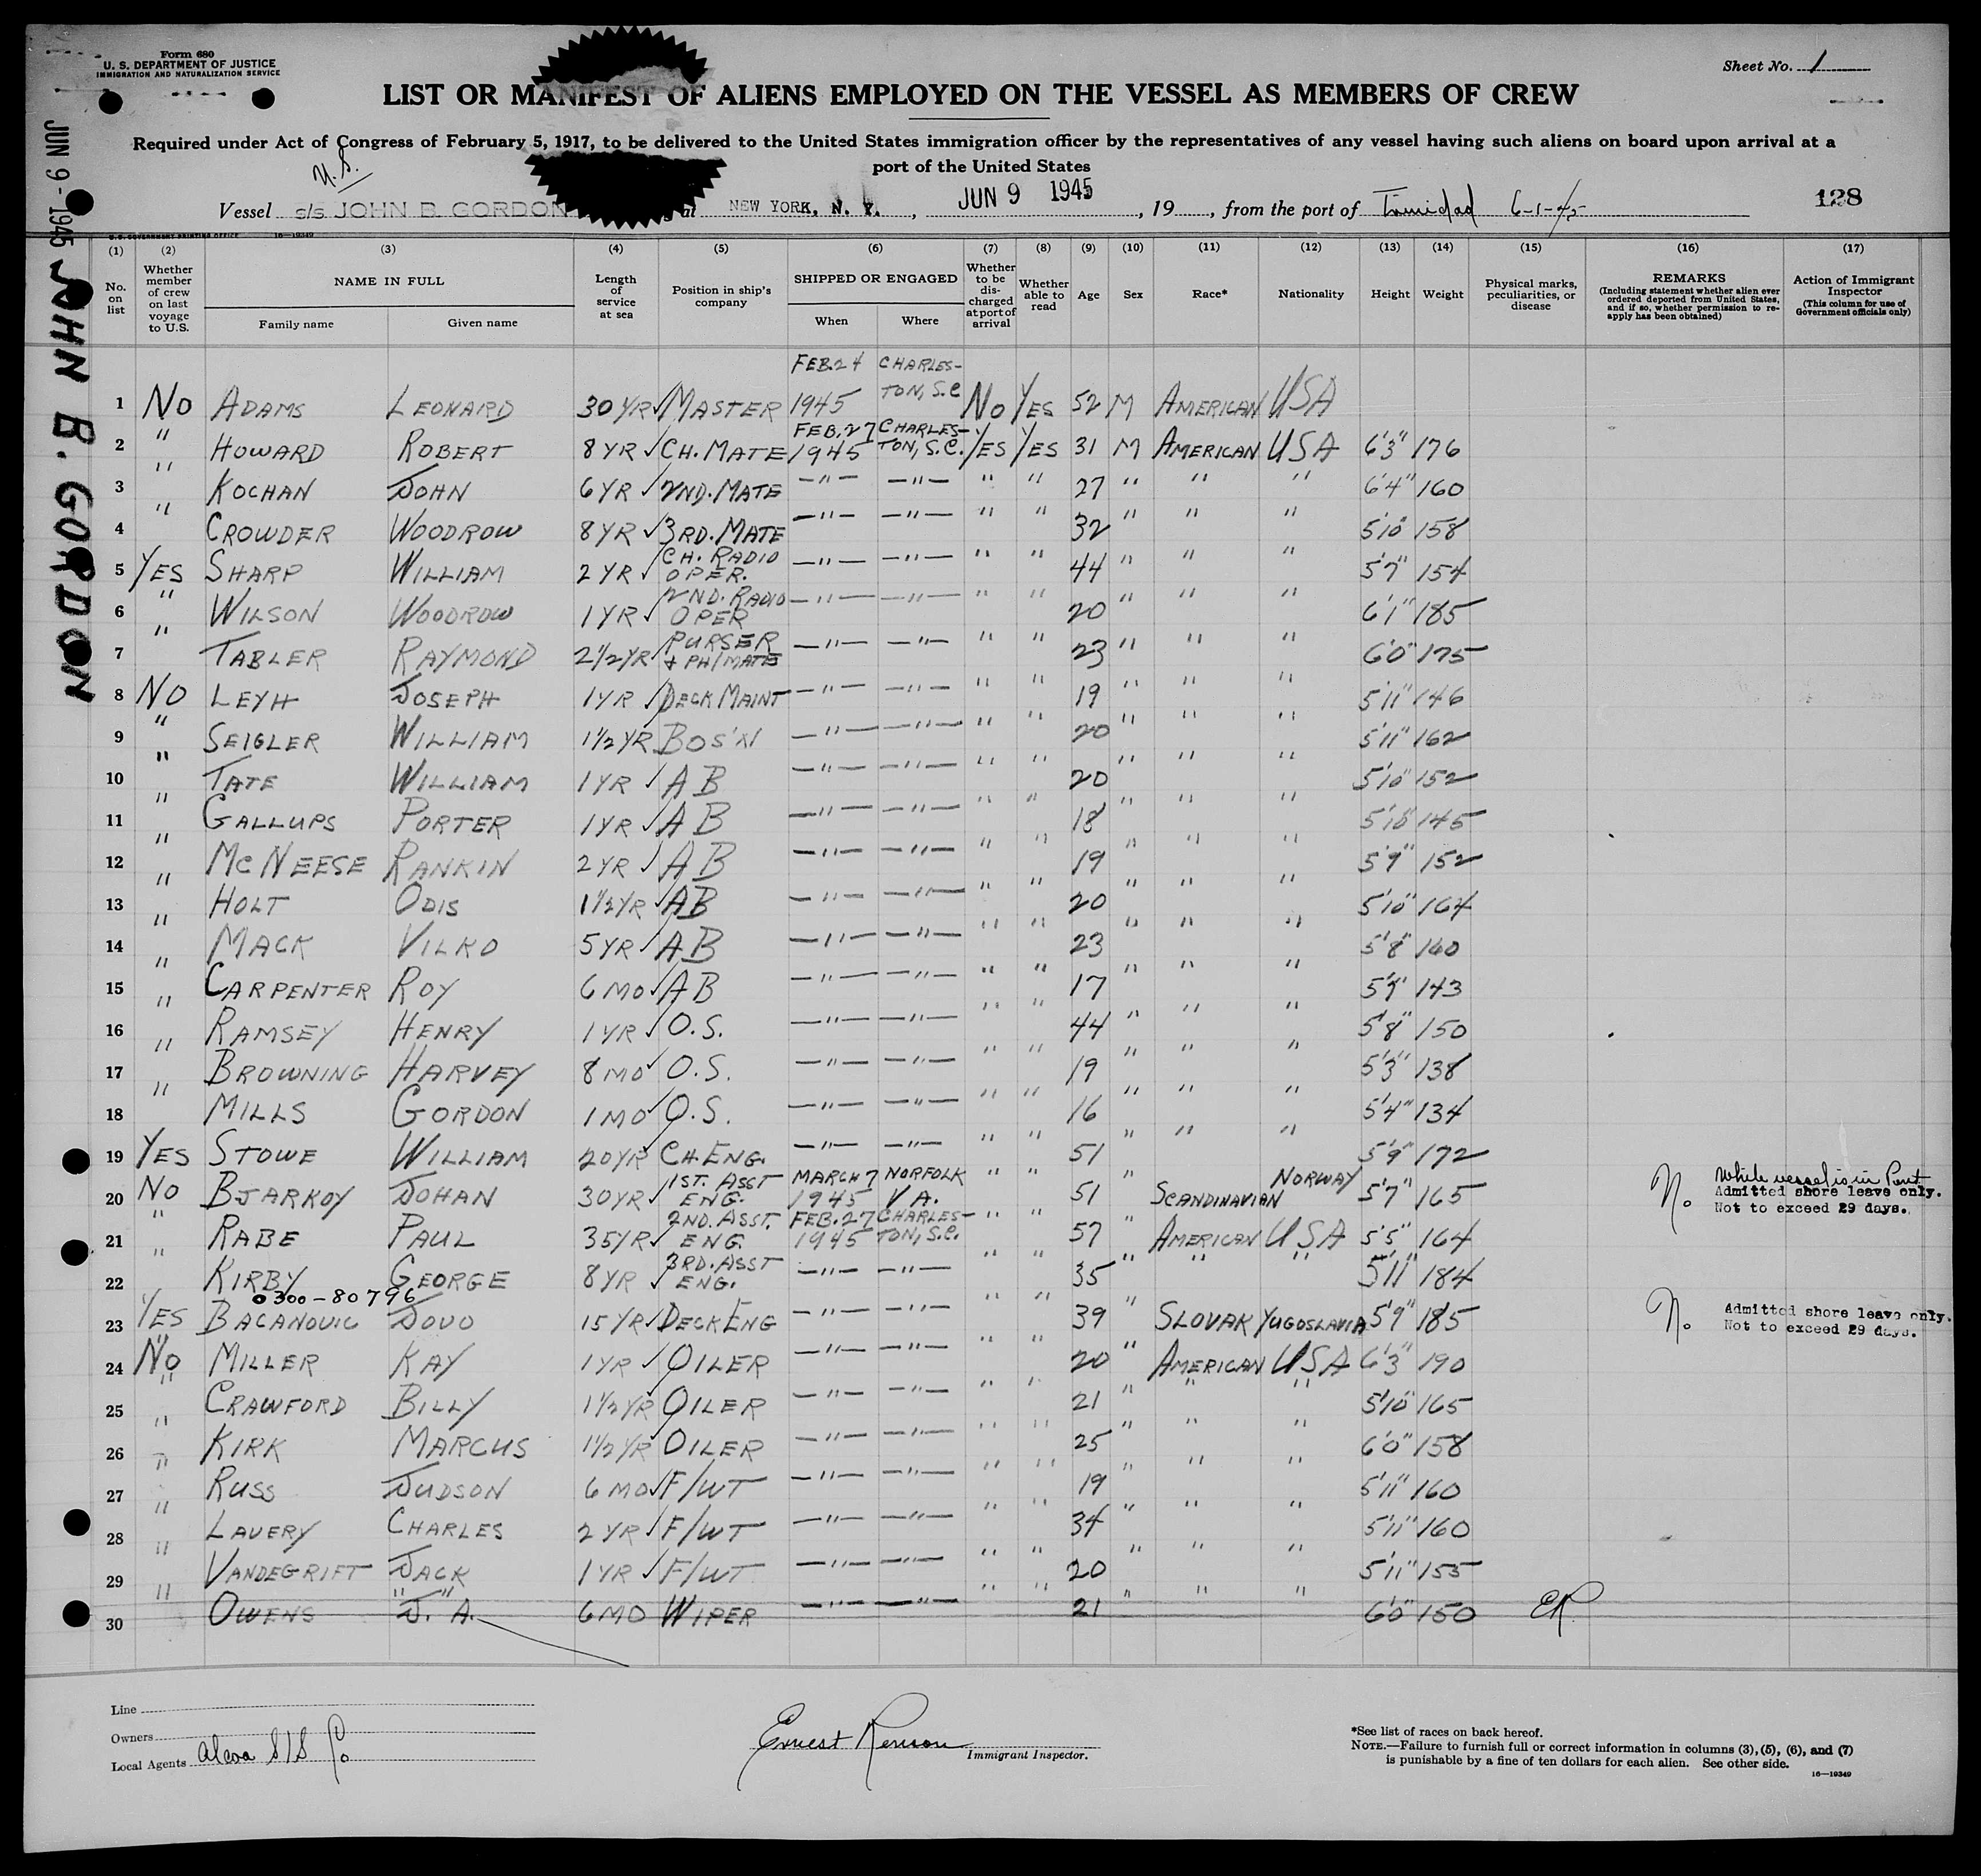 Form 680
U. S. DEPARTMENT OF JUSTICE
IMMIGRATION AND NATURALIZATION SERVICE
Sheet No. 1
LIST OR MANIFEST OF ALIENS EMPLOYED ON THE VESSEL AS MEMBERS OF CREW
Required under Act of Congress of February 5, 1917, to be delivered to the United States immigration officer by the representatives of any vessel having such aliens on board upon arrival at a
port of the United States
U.S.
Vessel s/s JOHN B. GORDON at NEW YORK, N. Y., JUN 9 1945, 19, from the port of Trinidad 6-1-45
128
JUN 9 - 1945 JOHN B. GORDON
U.S. GOVERNMENT PRINTING OFFICE 16—19349
(1) (2) (3) (4) (5) (6) (7) (8) (9) (10) (11) (12) (13) (14) (15) (16) (17)
No. on list
Whether member of crew on last voyage to U.S.
NAME IN FULL
Family name
Given name
Length of service at sea
Position in ship's company
SHIPPED OR ENGAGED
When
Where
Whether to be discharged at port of arrival
Whether able to read
Age
Sex
Race*
Nationality
Height
Weight
Physical marks, peculiarities, or disease
REMARKS
(Including statement whether alien ever ordered deported from United States, and if so, whether permission to re-apply has been obtained)
Action of Immigrant Inspector
(This column for use of Government officials only)
1 NO ADAMS LEONARD 30 YR MASTER FEB. 24 1945 CHARLESTON, S.C NO YES 52 M AMERICAN USA
2 " HOWARD ROBERT 8 YR CH. MATE FEB. 27 1945 CHARLESTON, S.C. YES YES 31 M AMERICAN USA 6'3" 176
3 " KOCHAN JOHN 6 YR 2ND. MATE —"— —"— " " 27 " " " 6'4" 160
4 " CROWDER WOODROW 8 YR 3RD. MATE —"— —"— " " 32 " " " 5'10" 158
5 YES SHARP WILLIAM 2 YR CH. RADIO OPER. —"— —"— " " 44 " " " 5'7" 154
6 " WILSON WOODROW 1 YR 2ND. RADIO OPER —"— —"— " " 20 " " " 6'1" 185
7 " TABLER RAYMOND 2 1/2 YR PURSER + PH/MATE —"— —"— " " 23 " " " 6'0" 175
8 NO LEYH JOSEPH 1 YR DECK MAINT —"— —"— " " 19 " " " 5'11" 146
9 " SEIGLER WILLIAM 1 1/2 YR BOS'N —"— —"— " " 20 " " " 5'11" 162
10 " TATE WILLIAM 1 YR AB —"— —"— " " 20 " " " 5'10" 152
11 " GALLUPS PORTER 1 YR AB —"— —"— " " 18 " " " 5'10" 145
12 " MCNEESE RANKIN 2 YR AB —"— —"— " " 19 " " " 5'9" 152
13 " HOLT ODIS 1 1/2 YR AB —"— —"— " " 20 " " " 5'10" 164
14 " MACK VILKO 5 YR AB —"— —"— " " 23 " " " 5'8" 160
15 " CARPENTER ROY 6 MO AB —"— —"— " " 17 " " " 5'9" 143
16 " RAMSEY HENRY 1 YR O.S. —"— —"— " " 44 " " " 5'8" 150
17 " BROWNING HARVEY 8 MO O.S. —"— —"— " " 19 " " " 5'3" 138
18 " MILLS GORDON 1 MO O.S. —"— —"— " " 16 " " " 5'4" 134
19 YES STOWE WILLIAM 20 YR CH. ENG. —"— —"— " " 51 " " " 5'9" 172
20 NO BJARKOY JOHAN 30 YR 1ST. ASST ENG. MARCH 7 1945 NORFOLK VA. " " 51 " SCANDINAVIAN NORWAY 5'7" 165 No While vessel is in Port Admitted shore leave only. Not to exceed 29 days.
21 " RABE PAUL 35 YR 2ND. ASST. ENG. FEB. 27 1945 CHARLESTON, S.C. " " 57 " AMERICAN USA 5'5" 164
22 " KIRBY GEORGE 8 YR 3RD. ASST ENG. —"— —"— " " 35 " " " 5'11" 184
0300-80796
23 YES BACANOVIC JOVO 15 YR DECK ENG —"— —"— " " 39 " SLOVAK YUGOSLAVIA 5'9" 185 No Admitted shore leave only. Not to exceed 29 days.
24 NO MILLER KAY 1 YR OILER —"— —"— " " 20 " AMERICAN USA 6'3" 190
25 " CRAWFORD BILLY 1 1/2 YR OILER —"— —"— " " 21 " " " 5'10" 165
26 " KIRK MARCUS 1 1/2 YR OILER —"— —"— " " 25 " " " 6'0" 158
27 " RUSS JUDSON 6 MO F/WT —"— —"— " " 19 " " " 5'11" 160
28 " LAVERY CHARLES 2 YR F/WT —"— —"— " " 34 " " " 5'11" 160
29 " VANDEGRIFT JACK 1 YR F/WT —"— —"— " " 20 " " " 5'11" 155
30 " OWENS "J." "A." 6 MO WIPER —"— —"— " " 21 " " " 6'0" 150 ER
Line
Owners
Local Agents Alcoa S/S Co
Ernest Renison
Immigrant Inspector.
*See list of races on back hereof.
NOTE.—Failure to furnish full or correct information in columns (3), (5), (6), and (7)
is punishable by a fine of ten dollars for each alien. See other side.
16—19349